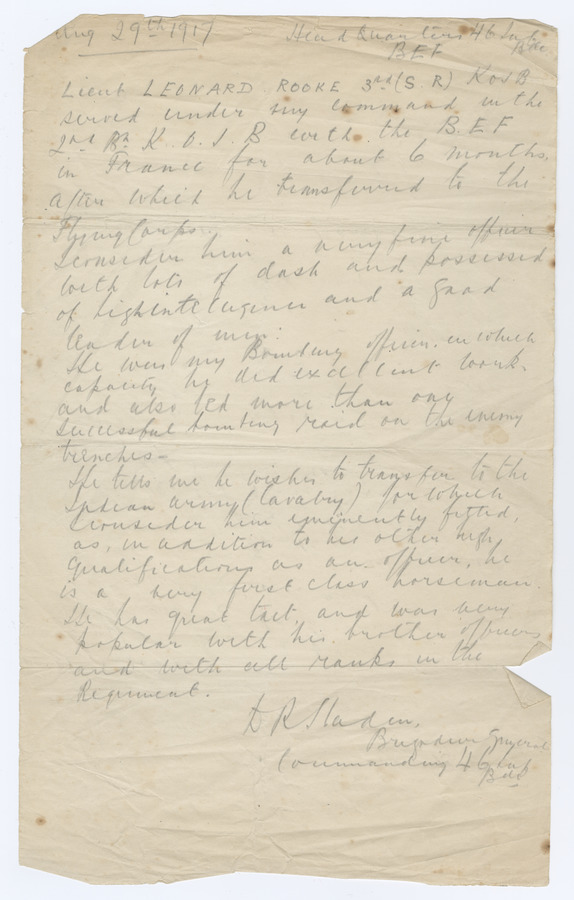 Aug 29th 1917 Head Quarters 46 Inf Bde
B E F
Lieut LEONARD ROOKE 3rd (S.R) KOSB
served under my command in the
2nd Bn K.O.S.B with the B.E.F
in France for about 6 months,
after which he transferred to the
Flying Corps,
I consider him a very fine officer
with lots of dash and possessed
of high intelligence and a good
leader of men.
He was my Bombing officer, in which
capacity he did excellent work.
and also led more than one
successful bombing raid on the enemy
trenches -
He tells me he wishes to transfer to the
Indian army (Cavalry) for which
I consider him eminently fitted,
as, in addition to his other high
qualifications as an officer, he
is a very first class horseman.
He has great tact and was very
popular with his brother officers
and with all ranks in the
Regiment.
D R Sladen,
Brigadier General
Commanding 46 Inf
Bde